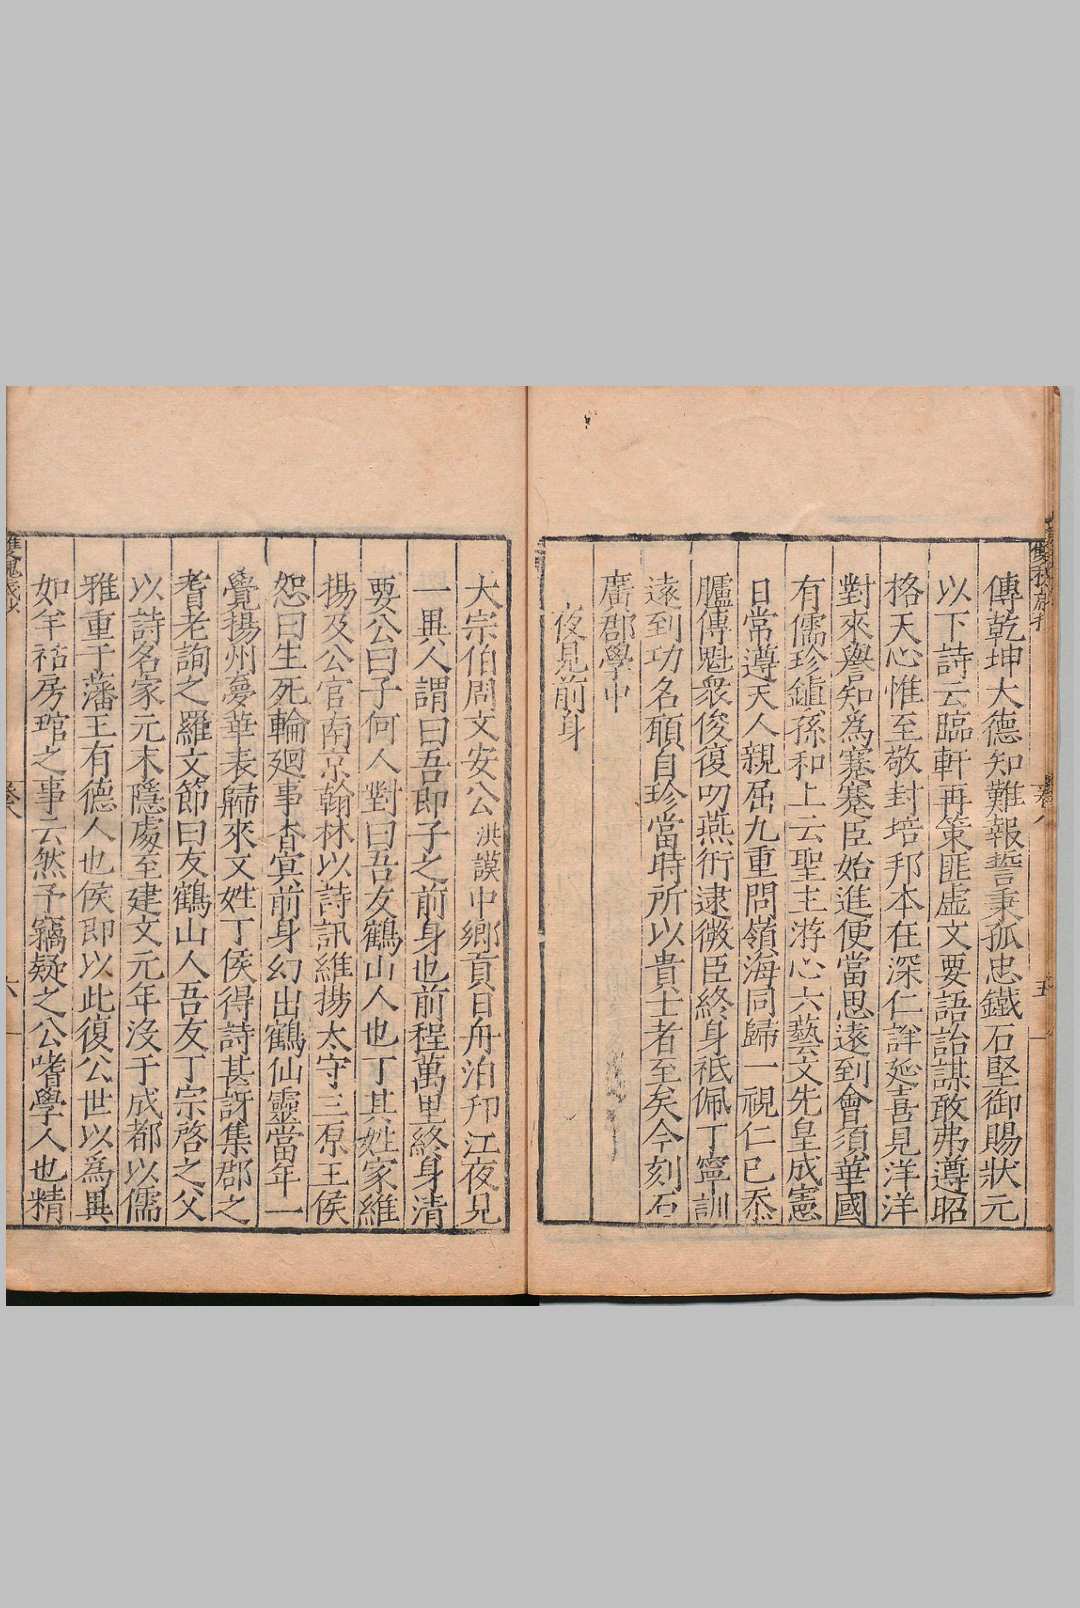 傳乾坤大德知難報誓秉孤忠鐵石堅御賜狀元
以下詩云臨軒再策匪虛文要語詒謀敢弗遵昭
格天心惟至敬封培邦本在深仁詳延喜見洋洋
對來譽知為蹇蹇臣始進便當思遠到會須華國
有儒珍鎮孫和上云聖主游心六藝文先皇成憲
日常遵天人親屈九重問嶺海同歸一視仁已忝
臚傳魁衆俊復叨燕衎逮微臣終身祗佩丁寧訓
遠到功名願自珍當時所以貴士者至矣今刻石
廣郡學中
夜見前身
大宗伯周文安公洪謨中鄉貢日舟泊邗江夜見
一異人謂曰吾即子之前身也前程萬里終身清
要公曰子何人對曰吾友鶴山人也丁其姓家維
揚及公官南京翰林以詩訊維揚太守三原王侯
恕曰生死輪廻事杳冥前身幻出鶴仙靈當年一
覺揚州夢華表歸來文姓丁侯得詩甚訝集郡之
耆老詢之羅文節曰友鶴山人吾友丁宗啓之父
以詩名家元末隱處至建文元年沒于成都以儒
雅重于藩王有德人也侯即以此復公世以為異
如羊祜房琯之事云然予竊疑之公嗜學人也精
卷八
六
五